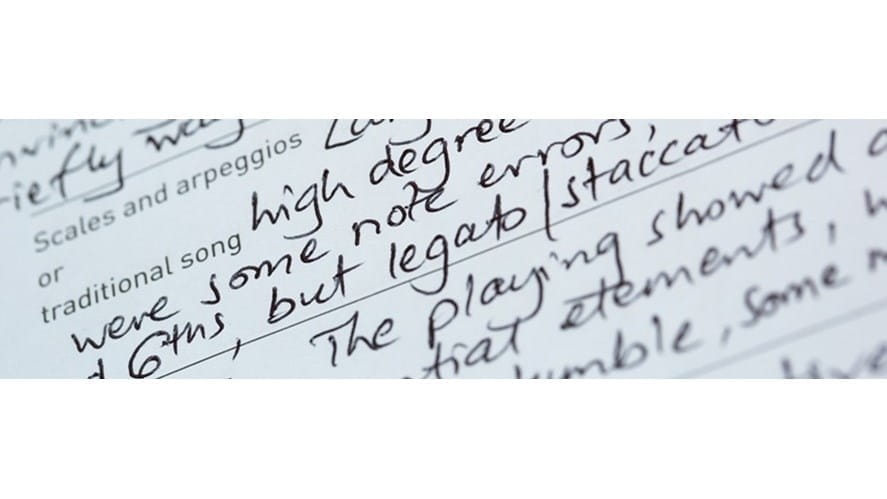 way
Scales and arpeggios
or
traditional song high degree
were some note errors,
6ths, but legato/staccato
The playing showed
elements,
some